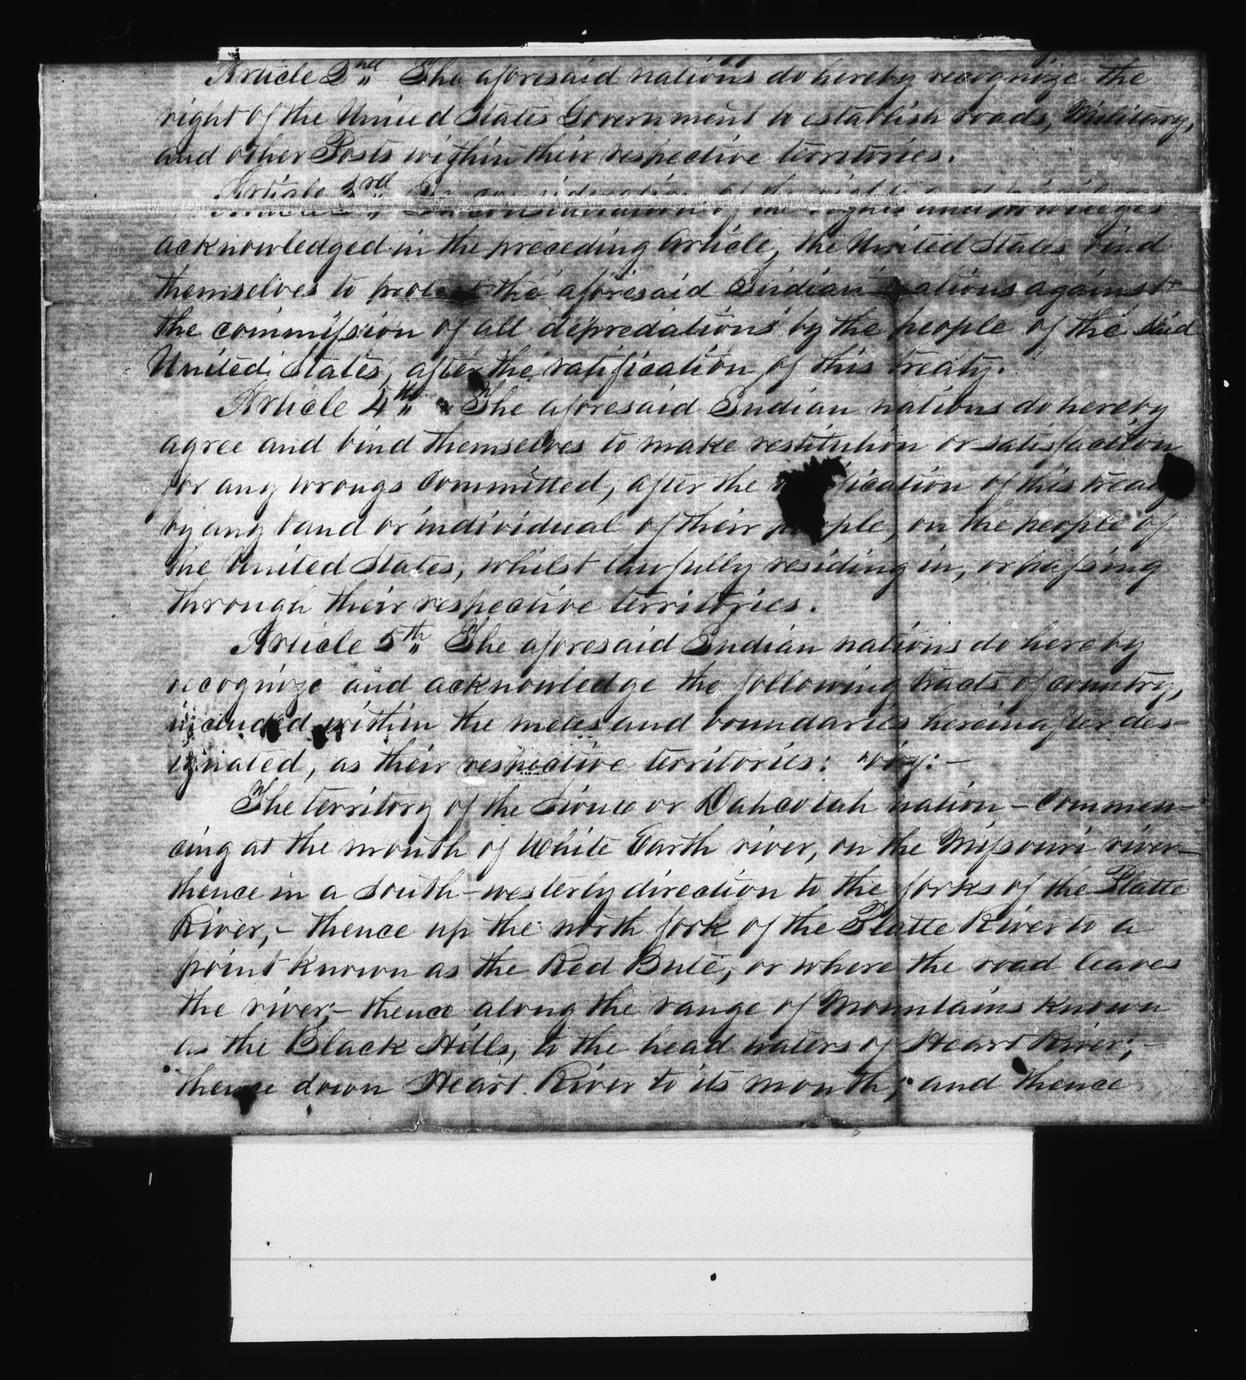 Article 2nd. The aforesaid nations do hereby recognize the
right of the United States Government to establish roads, Military,
and other Posts within their respective territories.
Article 3rd. In consideration of the rights and privileges
acknowledged in the preceding Article, the United States bind
themselves to protect the aforesaid Indian nations against
the commission of all depredations by the people of the said
United States, after the ratification of this treaty.
Article 4th. The aforesaid Indian nations do hereby
agree and bind themselves to make restitution or satisfaction
for any wrongs committed, after the ratification of this treaty
by any band or individual of their people, on the people of
the United States, whilst lawfully residing in, or passing
through their respective territories.
Article 5th. The aforesaid Indian nations do hereby
recognize and acknowledge the following tracts of country,
included within the metes and boundaries hereinafter des-
ignated, as their respective territories: viz:-
The territory of the Sioux or Dahcotah nation - Commen-
cing at the mouth of White Earth river, on the Missouri river-
thence in a South-westerly direction to the forks of the Platte
River,- thence up the north fork of the Platte River to a
point known as the Red Bute, or where the road leaves
the river;- thence along the range of Mountains known
as the Black Hills, to the head waters of Heart River;-
thence down Heart River to its mouth; and thence